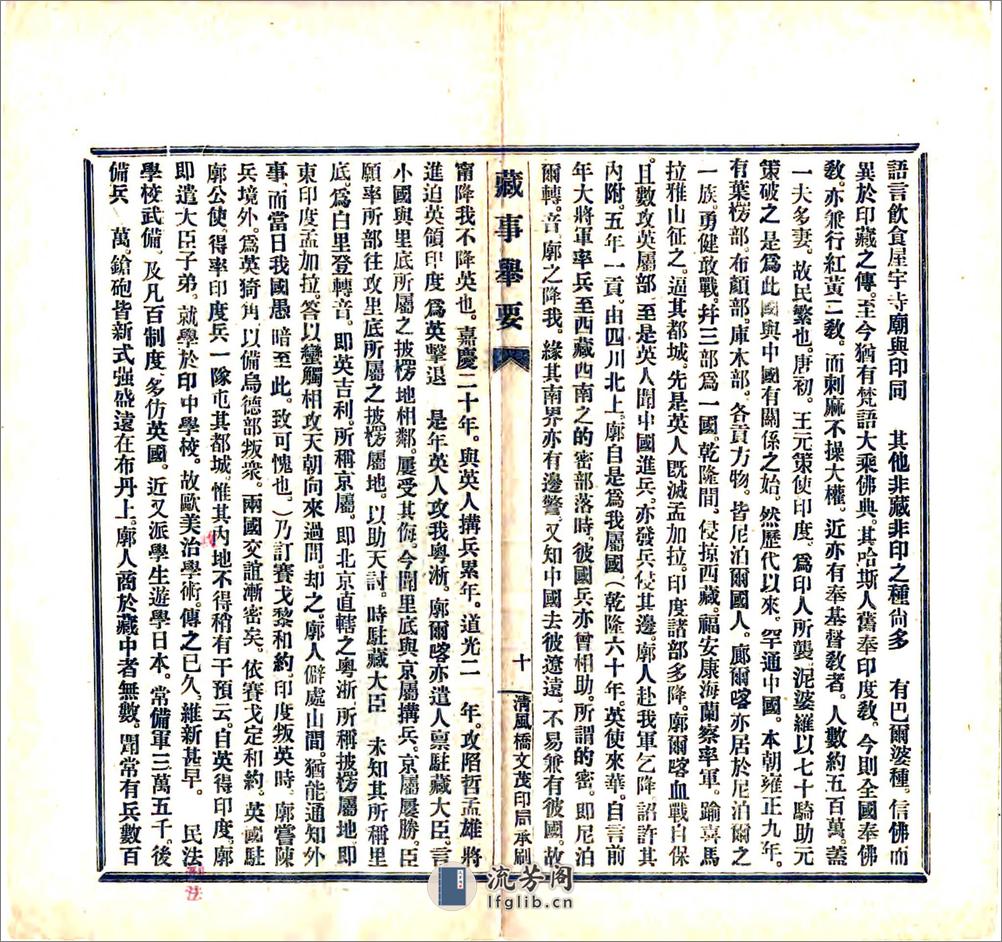 語言飲食屋宇寺廟與印同　其他非藏非印之種尙多　有巴爾婆種。信佛而
異於印藏之傳。至今猶有梵語大乘佛典。其哈斯人舊奉印度敎。今則全國奉佛
敎。亦兼行紅黃二敎。而剌麻不操大權。近亦有奉基督敎者。人數約五百萬。蓋
一夫多妻。故民繁也。唐初。王元策使印度。爲印人所襲。泥婆羅以七千騎助元
策破之。是爲此國與中國有關係之始。然歷代以來。罕通中國。本朝雍正九年。
有葉楞部。布顏部。庫木部。各貢方物。皆尼泊爾國人。廓爾喀亦居於尼泊爾之
一族。勇健敢戰。幷三部爲一國。乾隆間。侵掠西藏。福安康海蘭察率軍。踰喜馬
拉雅山征之。逼其都城。先是英人旣滅孟加拉。印度諸部多降。廓爾喀血戰自保。
且數攻英屬部。至是英人聞中國進兵。亦發兵侵其邊。廓人赴我軍乞降。詔許其
內附。五年一貢。由四川北上。廓自是爲我屬國。（乾隆六十年。英使來華。自言前
年大將軍率兵至西藏西南之的密部落時。彼國兵亦曾相助。所謂的密。卽尼泊
爾轉音。廓之降我。緣其南界亦有邊警。又知中國去彼遼遠。不易兼有彼國。故
藏事舉要
十
清風橋文茂印局承刷
甯降我不降英也。嘉慶二十年。與英人搆兵累年。道光二　年。攻陷哲孟雄。將
進迫英領印度。爲英擊退　是年英人攻我粵浙。廓爾喀亦遣人禀駐藏大臣。言
小國與里底所屬之披楞地相鄰。屢受其侮。今聞里底與京屬搆兵。京屬屢勝。臣
願率所部往攻里底所屬之披楞屬地。以助天討。時駐藏大臣　未知其所稱里
底。爲白里登轉音。卽英吉利。所稱京屬。卽北京直轄之粵浙。所稱披楞屬地。卽
東印度孟加拉。答以蠻觸相攻天朝向來過問。却之。廓人僻處山間。猶能通知外
事。而當日我國愚　暗至此。致可愧也。）乃訂賽戈黎和約。印度叛英時。廓嘗陳
兵境外。爲英猗角。以備烏德部叛衆。兩國交誼漸密矣。依賽戈定和約。英國駐
廓公使。得率印度兵一隊屯其都城。惟其內地不得稍有干預云。自英得印度。廓
卽遣大臣子弟。就學於印中學校。故歐美治學術。傳之已久。維新甚早。　民法
學校武備。及凡百制度。多仿英國。近又派學生遊學日本。常備軍三萬五千。後
備兵　萬。鎗砲皆新式強盛遠在布丹上。廓人商於藏中者無數。聞常有兵數百
流芳閣
lfglib.cn